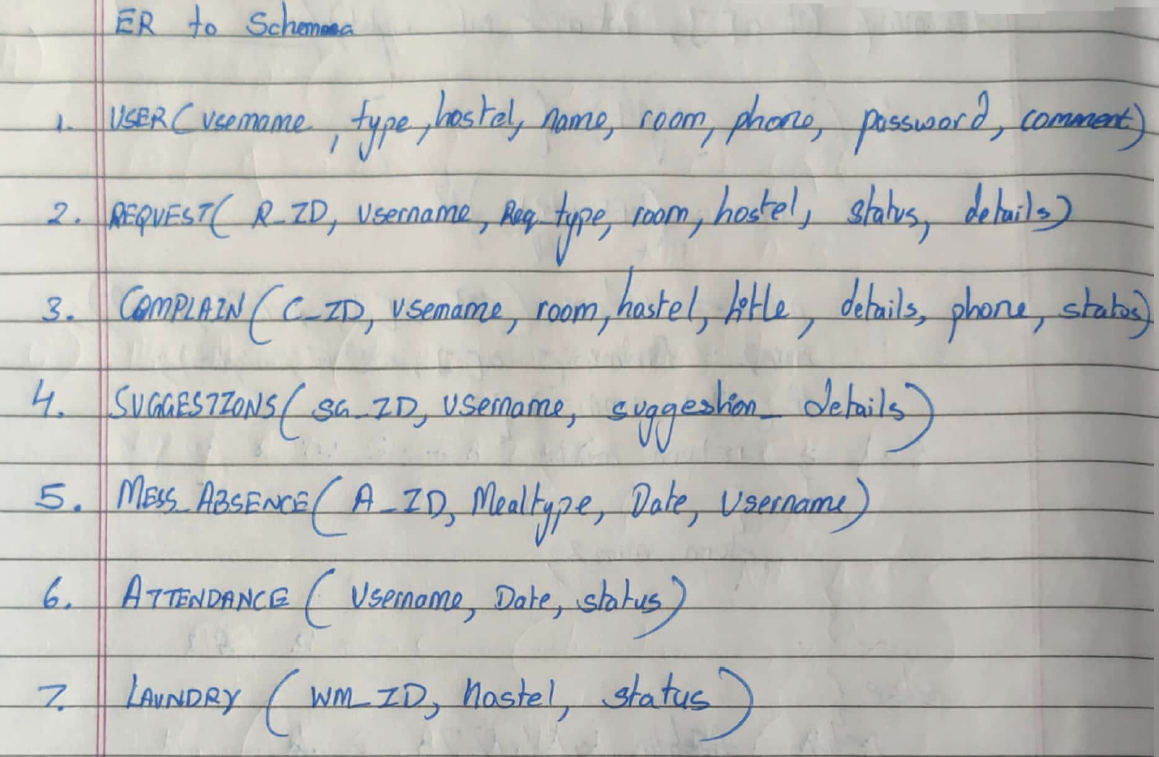 ER to Schemma
1. USER ( username, type, hostel, name, room, phone, password, comment)
2. REQUEST( R_ID, Username, Req type, room, hostel, status, details)
3. COMPLAIN ( C_ID, username, room, hostel, title, details, phone, status)
4. SUGGESTIONS ( SG_ID, username, suggestion_ details)
5. MESS_ABSENCE ( A_ID, Mealtype, Date, Username)
6. ATTENDANCE ( Username, Date, status)
7. LAUNDRY ( WM_ID, hostel, status)